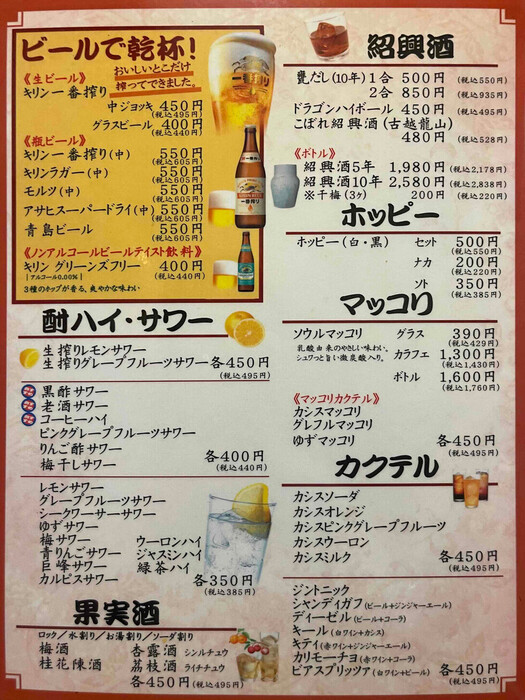 ビールで乾杯!
おいしいとこだけ
搾ってできました。
《生ビール》
キリン一番搾り
中ジョッキ 450円
(税込495円)
グラスビール 400円
(税込440円)
《瓶ビール》
キリン一番搾り(中) 550円
(税込605円)
キリンラガー(中) 550円
(税込605円)
モルツ(中) 550円
(税込605円)
アサヒスーパードライ(中) 550円
(税込605円)
青島ビール 550円
(税込605円)
《ノンアルコールビールテイスト飲料》
キリン グリーンズフリー 400円
|アルコール0.00%| (税込440円)
3種のホップが香る、爽やかな味わい
酎ハイ・サワー
生搾りレモンサワー
生搾りグレープフルーツサワー各450円
(税込495円)
黒酢サワー
老酒サワー
コーヒーハイ
ピンクグレープフルーツサワー
りんご酢サワー 各400円
梅干しサワー (税込440円)
レモンサワー
グレープフルーツサワー
シークワーサーサワー
ゆずサワー
梅サワー ウーロンハイ
青りんごサワー ジャスミンハイ
巨峰サワー 緑茶ハイ
カルピスサワー 各350円
(税込385円)
果実酒
ロック/水割り/お湯割り/ソーダ割り
梅酒 杏露酒 シンルチュウ
桂花陳酒 荔枝酒 ライチチュウ
各450円(税込495円)
紹興酒
甕だし(10年)1合 500円 (税込550円)
2合 850円 (税込935円)
ドラゴンハイボール 450円 (税込495円)
こぼれ紹興酒(古越龍山)
480円 (税込528円)
《ボトル》
紹興酒5年 1,980円 (税込2,178円)
紹興酒10年 2,580円 (税込2,838円)
※干梅(3ヶ) 200円 (税込220円)
ホッピー
ホッピー(白・黒) セット 500円
(税込550円)
ナカ 200円
(税込220円)
ソト 350円
(税込385円)
マッコリ
ソウルマッコリ グラス 390円
(税込429円)
乳酸由来のやさしい味わい。
シュワっと旨い微炭酸入り。
カラフェ 1,300円
(税込1,430円)
ボトル 1,600円
(税込1,760円)
《マッコリカクテル》
カシスマッコリ
グレフルマッコリ
ゆずマッコリ 各450円
(税込495円)
カクテル
カシスソーダ
カシスオレンジ
カシスピンクグレープフルーツ
カシスウーロン
カシスミルク 各450円
(税込495円)
ジントニック
シャンディガフ(ビール+ジンジャーエール)
ディーゼル(ビール+コーラ)
キール(白ワイン+カシス)
キティ(赤ワイン+ジンジャーエール)
カリモーチョ(赤ワイン+コーラ)
ビアスプリッツァ(白ワイン+ビール) 各450円
(税込495円)